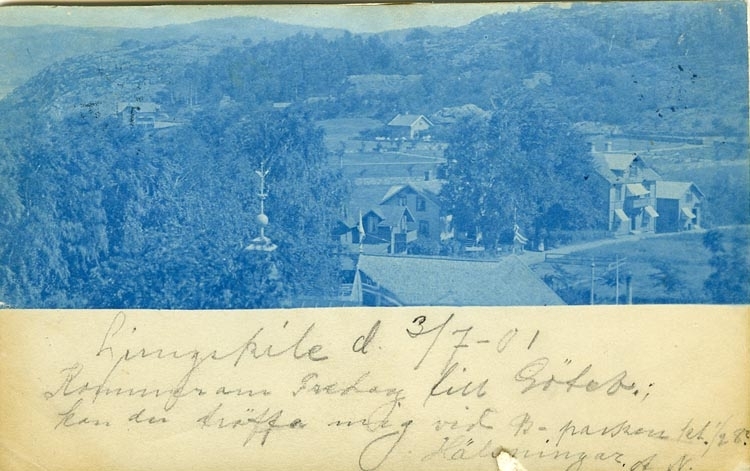 Ljungskile d. 3/7-01
Kommer om Fredag till Göteb.;
kan du träffa mig vid B-parken kl. 1/2 8?
Hälsningar A. N.